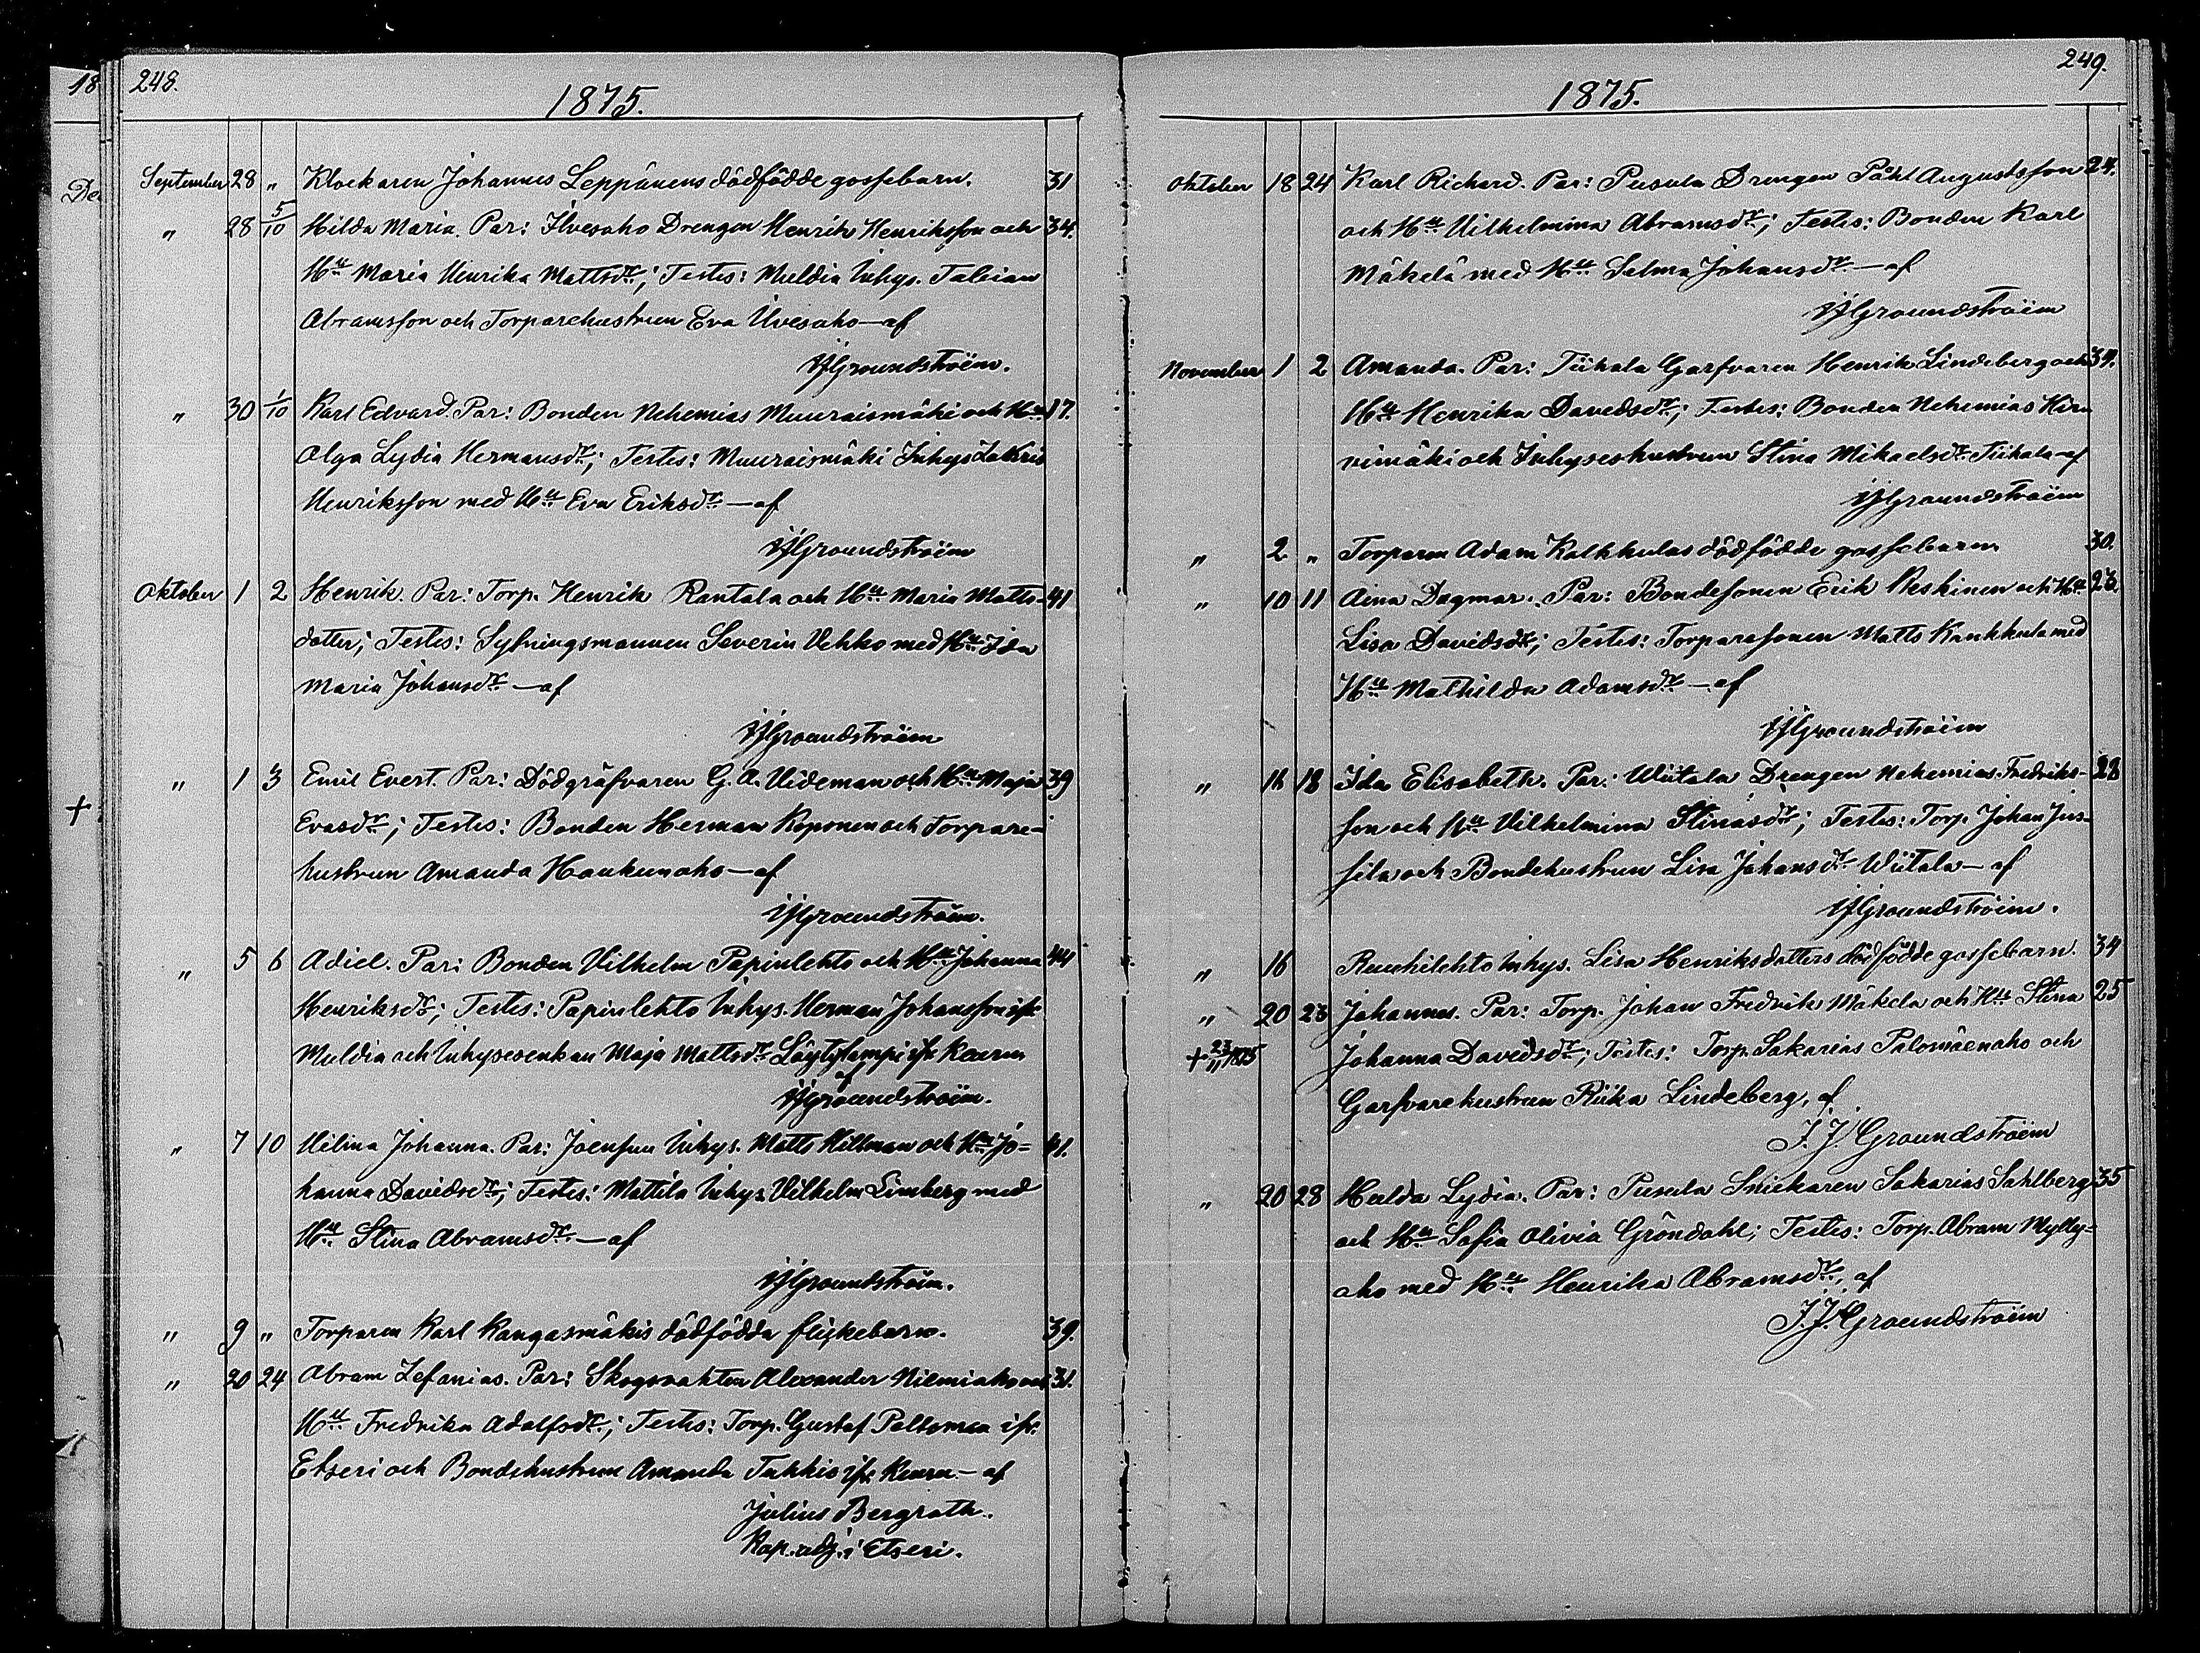 18
De
+
248.
1875.
September 28 " Klockaren Johannes Leppänens dödfödde gossebarn. 31
" 28 5/10 Hilda Maria. Par: Ilvesaho Drengen Henrik Henriksson och 34.
Hu Maria Henrika Mattsdr; Testes: Muldia Inhys. Tabian
Abramsson och Torparehustrun Eva Ilvesaho—af
JJGroundstroëm.
" 30 1/10 Karl Edvard. Par: Bonden Nehemias Muuraismäki och Hu 17.
Olga Lydia Hermansdr; Testes: Muuraismäki Inhys Zakris
Henriksson med Hu Eva Eriksdr—af
JJGroundstroëm
Oktober 1 2 Henrik. Par: Torp. Henrik Rantala och Hu Maria Matts- 41
dotter; Testes: Sytningsmannen Severin Vehko med Hu Ida
Maria Johansdr—af
JJGroundstroëm
" 1 3 Emil Evert. Par: Dödgräfvaren G. A. Videman och Hu Maja 39
Evasdr; Testes: Bonden Herman Koponen och Torpare-
hustrun Amanda Haukunaho—af
JJGroundstroëm.
" 5 6 Adiel. Par: Bonden Vilhelm Papinlehto och Hu Johanna 44
Henriksdr; Testes: Papinlehto Inhys. Herman Johansson ifr.
Muldia och Inhysesenkan Maja Mattsdr Löytylampi ifr. Keuru
af
JJGroundstroëm.
" 7 10 Hilma Johanna. Par: Joensuu Inhys. Matts Killman och Hu Jo= 41.
hanna Davidsdr; Testes: Mattila Inhys. Vilhelm Limberg med
Hu Stina Abramsdr—af
JJGroundstroëm.
" 9 " Torparen Karl Kangasmäkis dödfödda flickebarn. 39.
" 20 24 Abram Zefanias. Par: Skogsvakten Alexander Niemiaho och 31.
Hu Fredrika Adolfsdr; Testes: Torp. Gustaf Peltomaa ifr.
Etseri och Bondehustrun Amanda Tukkio ifr. Keuru—af
Julius Bergroth.
Kap. adj. i Etseri.
249.
1875.
Oktober 18 24 Karl Richard. Par: Pusula Drengen Påhl Augustsson 24.
och Hu Vilhelmina Abramsdr; Testes: Bonden Karl
Mäkelä med Hu Selma Johansdr—af
JJGroundstroëm
November 1 2 Amanda. Par: Tiihala Garfvaren Henrik Lindeberg och 34.
Hu Henrika Davidsdr; Testes: Bonden Nehemias Hir-
vimäki och Inhyseshustrun Stina Mikaelsdr Tiihala—af
JJGroundstroëm
" 2 " Torparen Adam Kalhkulas dödfödde gossebarn 30.
" 10 11 Aina Dagmar. Par: Bondesonen Erik Keskinen och Hu 23.
Lisa Davidsdr; Testes: Torparesonen Matts Kankkula med
Hu Mathilda Adamsdr—af
JJGroundstroëm
" 16 18 Ida Elisabeth. Par: Wiitala Drengen Nehemias Fredriks- 28
son och Hu Vilhelmina Stinasdr; Testes: Torp. Johan Jus-
sila och Bondehustrun Lisa Johansdr Wiitala—af
JJGroundstroëm.
" 16 Ruuhilehto Inhys. Lisa Henriksdotters dödfödde gossebarn. 34
" 20 23 Johannes. Par: Torp. Johan Fredrik Mäkela och Hu Stina 25
+ 23/11 1875 Johanna Davidsdr; Testes: Torp. Sakarias Palomäenaho och
Garfvarehustrun Riika Lindeberg, af
J. J. Groundstroëm
" 20 28 Hulda Lydia. Par: Pusula Snickaren Sakarias Sahlberg 35
och Hu Sofia Olivia Gröndahl; Testes: Torp. Abram Mylly=
aho med Hu Henrika Abramsdr, af
J. J. Groundstroëm